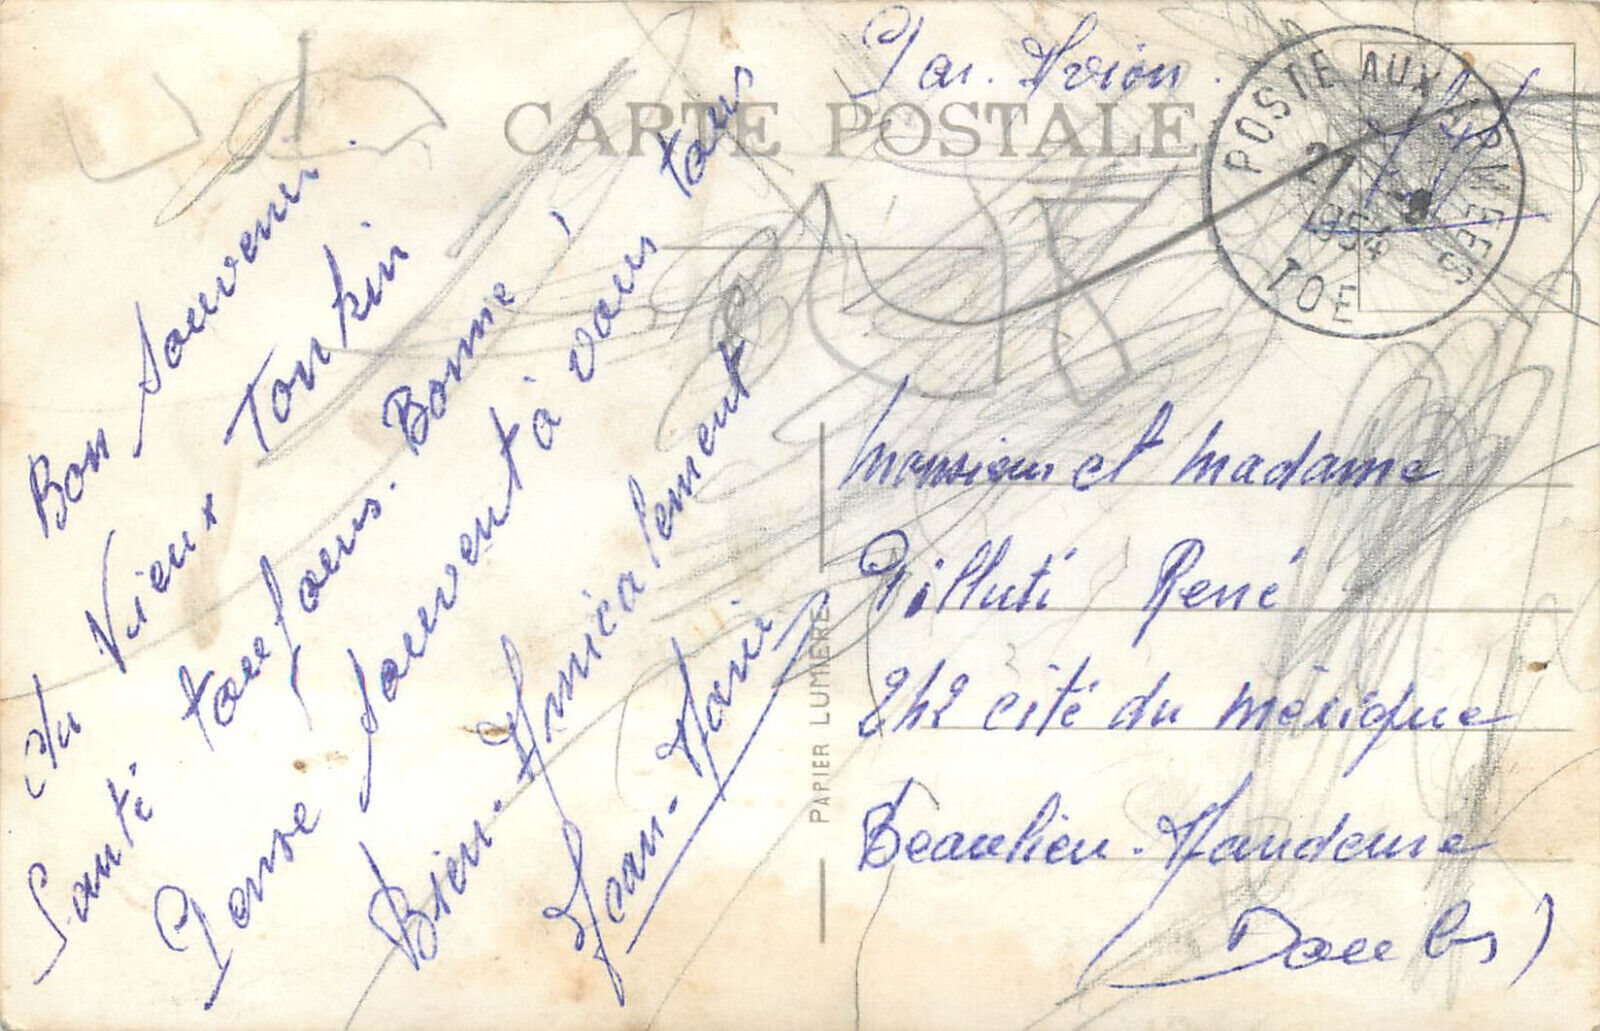 Par. Avion.
CARTE POSTALE
POSTE AUX ARMEES
21
1954
TOE
F M
Bon Souvenir.
du Vieux Tonkin
Santé toujours. Bonne'
Pense souvent à vous tous
Bien. Amicalement
Jean-Marie
PAPIER LUMIERE
Monsieur et Madame
René
242 cité du Méxique
Beaulieu-Mandeure
(Doubs)